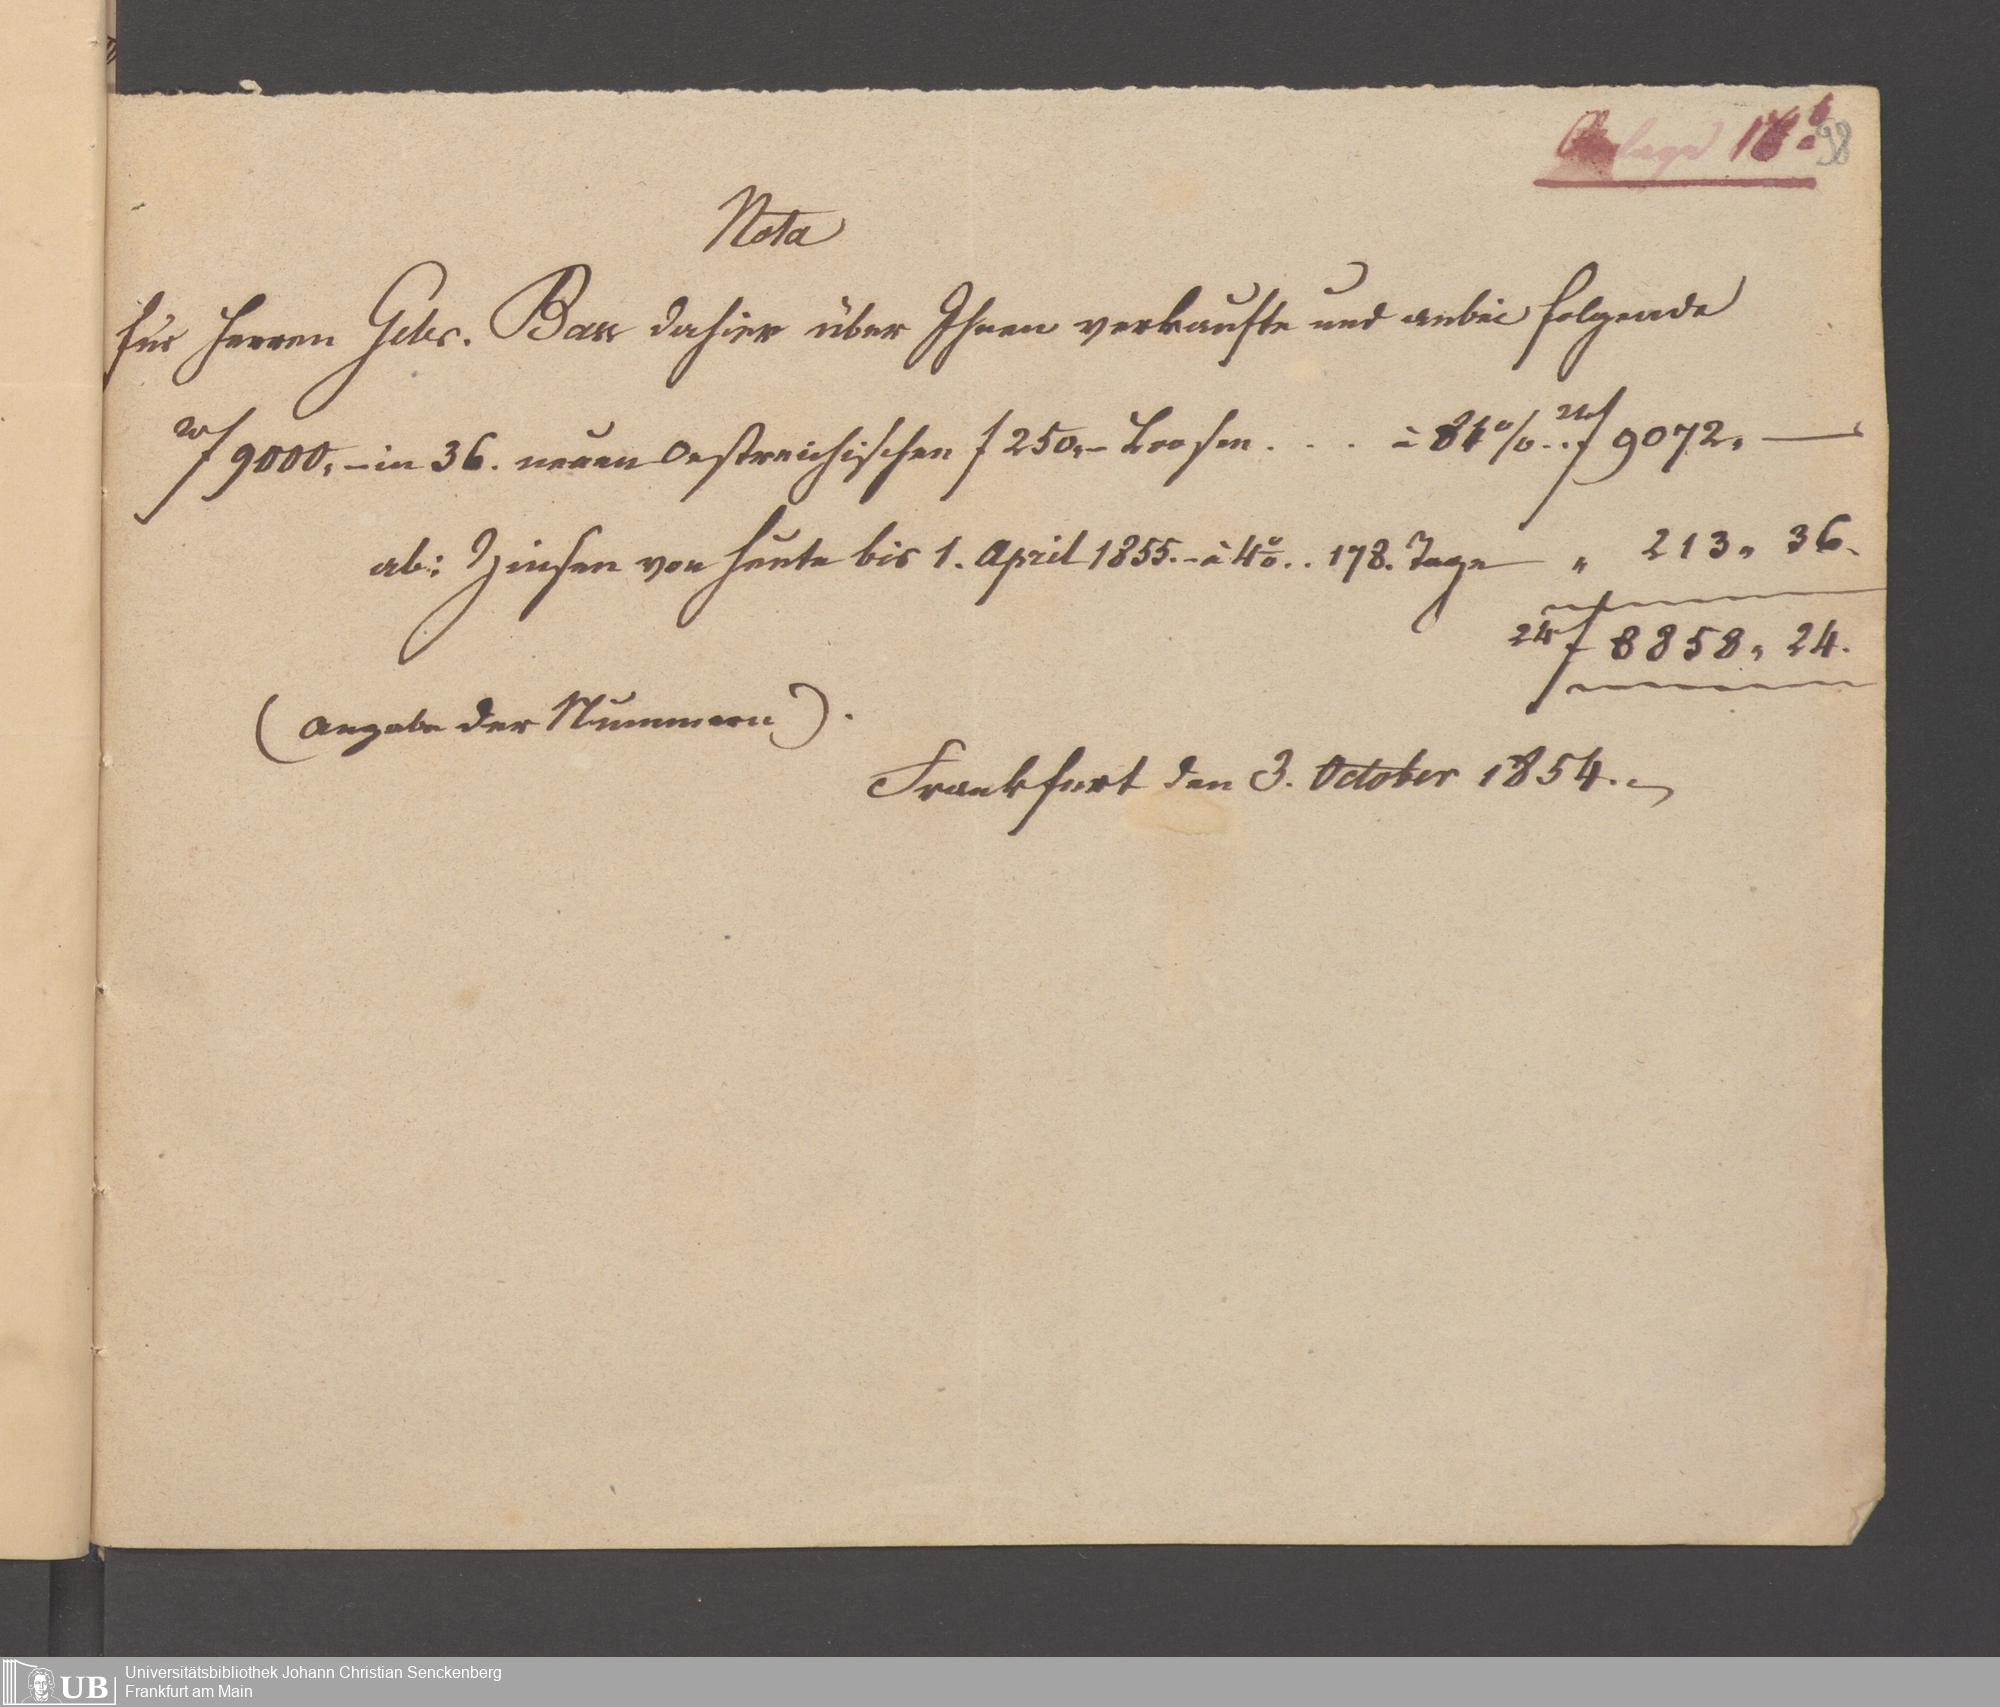 Anlage 18b.
98
Nota
für Herren Gebr. Bass dahier über Ihnen verkaufte und anbei folgende
20/f 9000,- in 36. neuen Oestreichischen f 250,- Loosen . . . à 84% . . 24/f 9072, —
ab: Zinsen von heute bis 1. April 1855. - à 4% . . 178. Tage " 213, 36.
24/f 8858, 24.
(Angabe der Nummern).
Frankfurt den 3. October 1854.
Universitätsbibliothek Johann Christian Senckenberg
Frankfurt am Main
UB